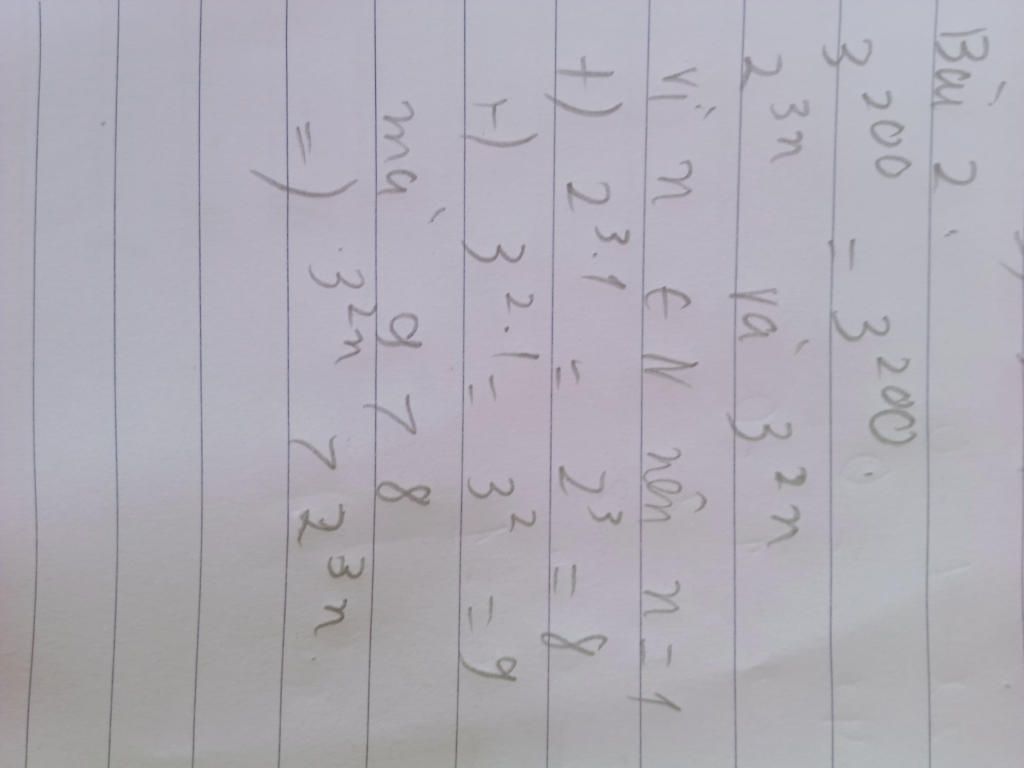 Bài 2.
3²⁰⁰ = 3²⁰⁰
2³ⁿ và 3²ⁿ
Vì n ∈ N nên n = 1
+) 2³·¹ = 2³ = 8
+) 3²·¹ = 3² = 9
mà 9 > 8
=) 3²ⁿ > 2³ⁿ.